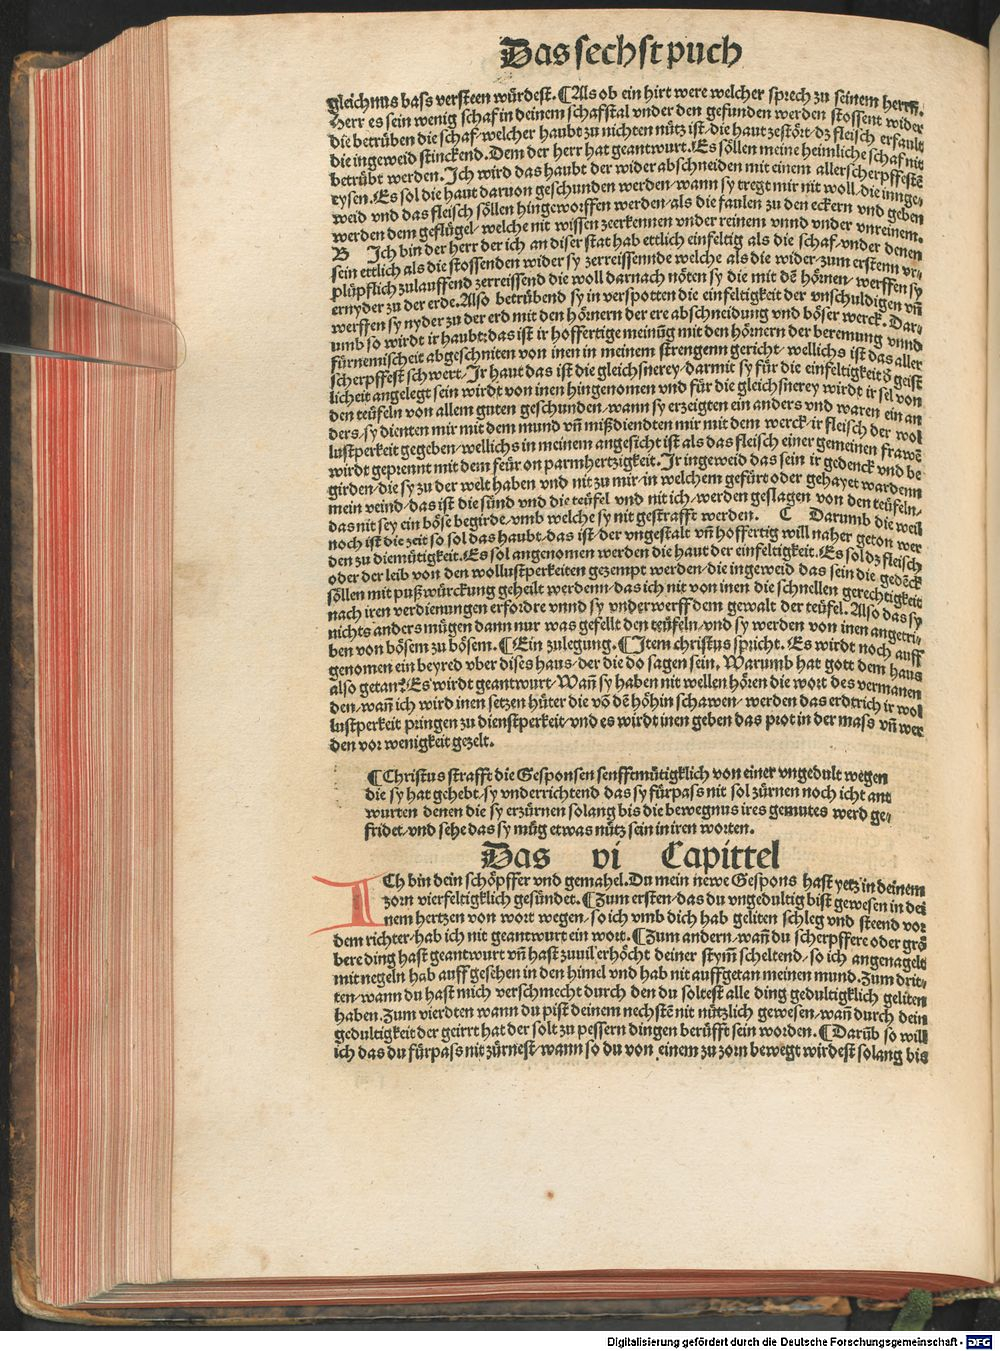 Das sechst puch
gleichnus bass versteen würdest. ¶ Als ob ein hirt were welcher sprech zu seinem herrn̄.
Herr es sein wenig schaf in deinem schafstal vnder den gefunden werden stossent wider
die betrüben die schaf/welcher haubt zu nichten nütz ist/die haut zestört/dz fleisch erfault
die ingeweid stinckend. Dem der herr hat geantwurt. Es söllen meine heimliche schaf nit
betrübt werden. Ich wird das haubt der wider abschneiden mit einem allerscherpffestē
eysen. Es sol die haut daruon geschunden werden/wann sy tregt mir nit woll/die innge-
weid vnd das fleisch söllen hingeworffen werden/als die faulen zu den eckern vnd geben
werden dem geflügel/welche nit wissen zeerkennen vnder reinem vnnd vnder vnreinem.
B Ich bin der herr der ich an diser stat hab ettlich einfeltig als die schaf/vnder denen
sein ettlich als die stossenden wider sy zerreissennde welche als die wider/zum erstenn vr-
plüpflich zulauffend zerreissend die woll darnach nöten sy die mit dē hörnen/werffen sy
ernyder zu der erde. Also betrübend sy in verspotten die einfeltigkeit der vnschuldigen vn̄
werffen sy nyder zu der erd mit den hörnern der ere abschneidung vnd böser werck. Dar-
umb so wirdt ir haubt: das ist ir hoffertige meinūg mit den hörnern der beremung vnnd
fürnemischeit abgeschniten von inen in meinem strengenn gericht/wellichs ist das aller
scherpffest schwert/Ir haut das ist die gleichsnerey/darmit sy für die einfeltigkeit ð geist
licheit angelegt sein wirdt von inen hingenomen vnd für die gleichsnerey wirdt ir sel von
den teüfeln von allem guten geschunden/wann sy erzeigten ein anders vnd waren ein an
ders/sy dienten mir mit dem mund vn̄ mißdiendten mir mit dem werck/ir fleisch der wol
lustperkeit gegeben/wellichs in meinem angesicht ist als das fleisch einer gemeinen frawē
wirdt geprennt mit dem feür on parmhertzigkeit. Ir ingeweid das sein ir gedenck vnd be
girden/die sy zu der welt haben vnd nit zu mir/in welchem gefürt oder gehayet wardenn
mein veind/das ist die sünd vnd die teüfel vnd nit ich/werden geslagen von den teüfeln/
das nit sey ein böse begirde/vmb welche sy nit gestrafft werden. C Darumb die weil
noch ist die zeit so sol das haubt/das ist/der vngestalt vn̄ hoffertig will naher geton wer
den zu diemütigkeit. Es sol angenomen werden die haut der einfeltigkeit. Es sol dz fleisch
oder der leib von den wollustperkeiten gezempt werden/die ingeweid das sein die gedēck
söllen mit puß würckung geheilt werdenn/das ich nit von inen die schnellen gerechtigkeit
nach iren verdienungen erfordre vnnd sy vnderwerff dem gewalt der teüfel. Also das sy
nichts anders mügen dann nur was gefellt den teüfeln/vnd sy werden von inen angetri-
ben von bösem zu bösem. ¶ Ein zulegung. ¶ Item christus spricht. Es wirdt noch auff
genomen ein beyred vber dises haus/der die do sagen sein. Warumb hat gott dem haus
also getan? Es wirdt geantwurt/Wan̄ sy haben nit wellen hören die wort des vermanen
den/wan̄ ich wird inen setzen hüter die vō dē höhin schawen/werden das erdtrich ir wol
lustperkeit pringen zu dienstperkeit/vnd es wirdt inen geben das prot in der mass vn̄ wer
den vor wenigkeit gezelt.
¶ Christus strafft die Gesponsen senfftmütigklich von einer vngedult wegen
die sy hat gehebt/sy vnderrichtend das sy fürpass nit sol zürnen noch icht ant
wurten denen die sy erzürnen solang bis die bewegnus ires gemutes werd ge-
fridet/vnd sehe das sy müg etwas nütz sein in iren worten.
Das vi Capittel
ICh bin dein schöpffer vnd gemahel. Du mein newe Gespons hast yetz in deinem
zorn vierfeltigklich gesündet. ¶ Zum ersten/das du vngedultig bist gewesen in dei
nem hertzen von wort wegen/so ich vmb dich hab geliten schleg vnd steend vor
dem richter/hab ich nit geantwurt ein wort. ¶ Zum andern/wan̄ du scherpffere oder grö
bere ding hast geantwurt vn̄ hast zuuil erhöcht deiner stym̄ scheltend/so ich angenagelt
mit negeln hab auff gesehen in den himel vnd hab nit auffgetan meinen mund. Zum drit-
ten/wann du hast mich verschmecht durch den du soltest alle ding gedultigklich geliten
haben. Zum vierdten wann du pist deinem nechstē nit nützlich gewesen/wan̄ durch dein
gedultigkeit der geirrt hat der solt zu pessern dingen berüfft sein worden. ¶ Darūb so will
ich das du fürpass nit zürnest/wann so du von einem zu zorn bewegt wirdest solang bis
Digitalisierung gefördert durch die Deutsche Forschungsgemeinschaft - DFG